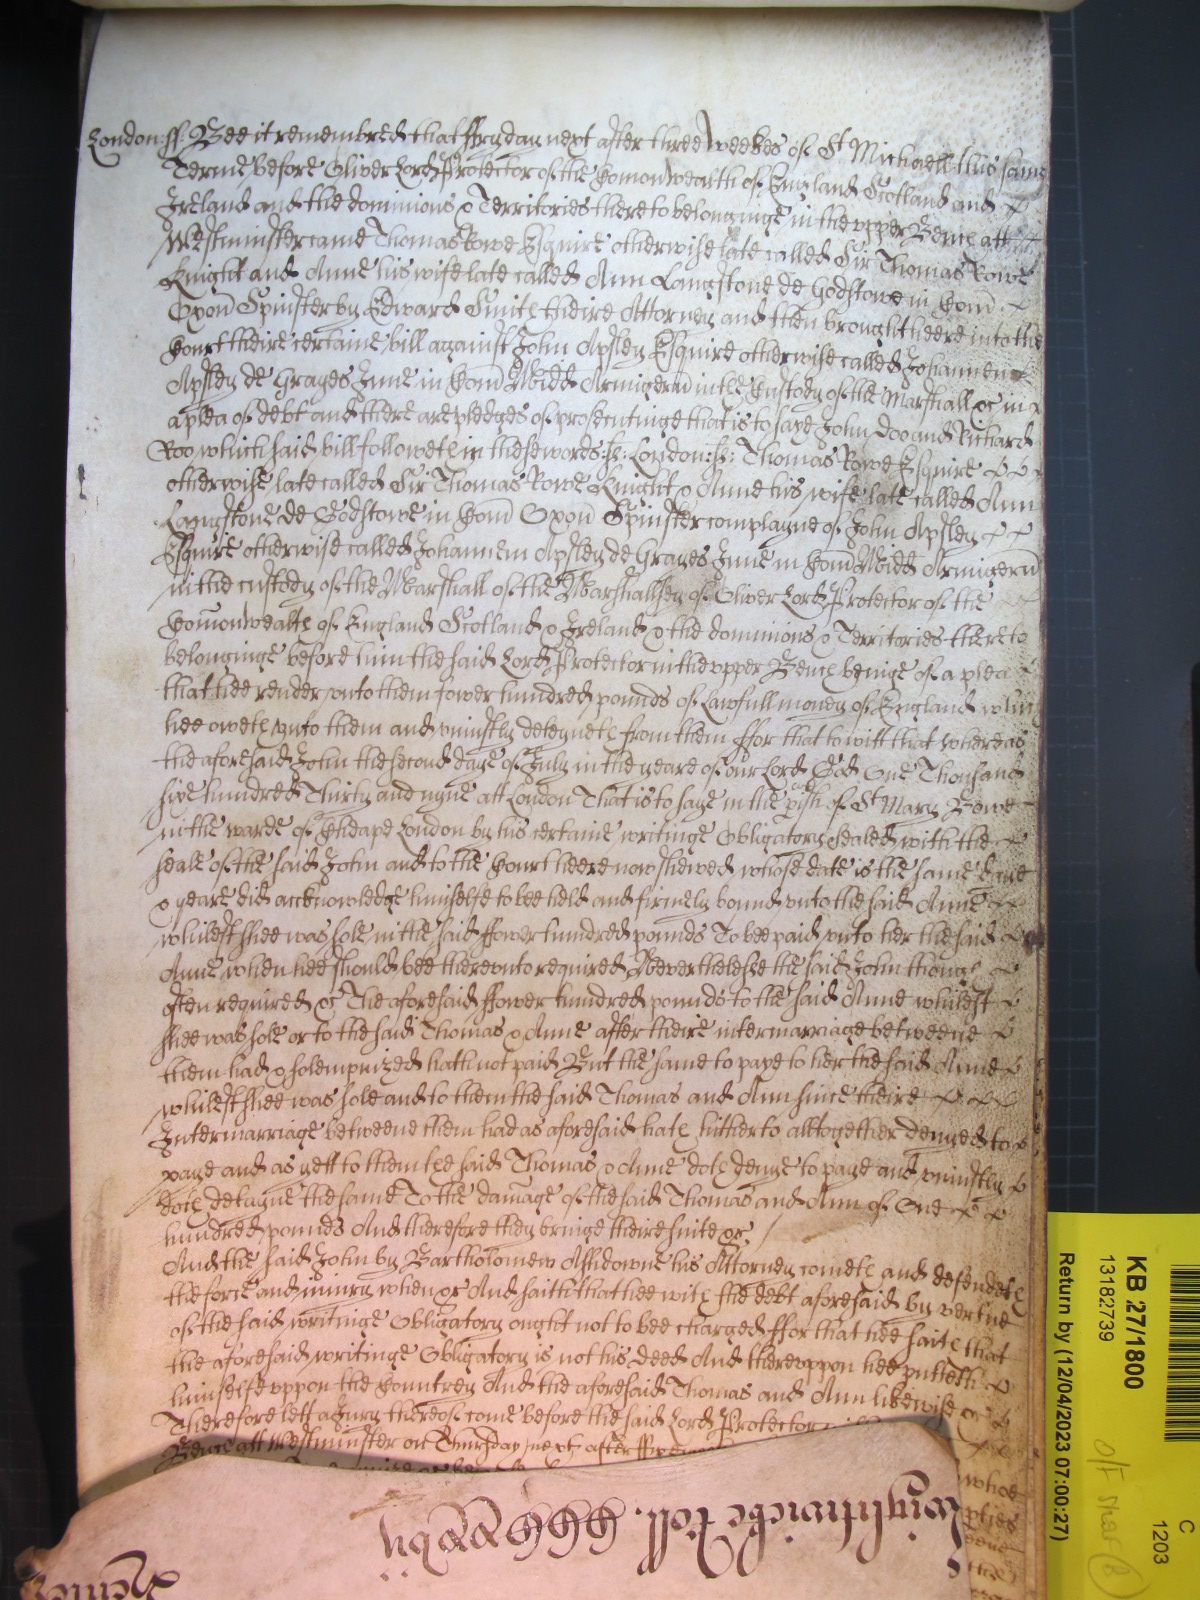 London: ss: Bee it remembred that ffryday next after three weekes of St Michaell this same
Terme before Oliver Lord Protector of the Comonwealth of England Scotland and
Ireland and the dominions & Territories thereto belonginge in the vpper Bench att
Westminster came Thomas Rowe Esquire otherwise late called Sir Thomas Rowe
Knight and Anne his wife late called Ann Langstone de Godstowe in Com
Oxon Spinster by Edward Smith theire Attorney and then brought heere into the
Court theire certaine bill against John Apsley Esquire otherwise called Johannem
Apsley de Grayes Inne in Com Midd Armigerum in the Custody of the Marshall &c in
a plea of debt and there are pledges of prosecutinge that is to saye John Doo and Richard
Roo which said bill followeth in these words: ss: London: ss: Thomas Rowe Esquire
otherwise late called Sir Thomas Rowe Knight & Anne his wife late called Ann
Langstone de Godstowe in Com Oxon Spinster complayne of John Apsley
Esquire otherwise called Johannem Apsley de Grayes Inne in Com Midd Armigerum
in the custody of the Marshall of the Marshallsey of Oliver Lord Protector of the
Comonwealth of England Scotland & Ireland & the dominions & Territories thereto
belonginge before him the said Lord Protector in the vpper Bench beinge of a plea
that hee render vnto them fower hundred pounds of Lawfull money of England which
hee oweth vnto them and vniustly deteyneth from them ffor that to witt that whereas
the aforesaid John the second daye of July in the yeare of our Lord God One Thousand
six hundred Thirty and nyne att London That is to saye in the pish of St Mary Bowe
in the warde of Cheape London by his certaine writinge Obligatory sealed with the
seale of the said John and to the Court heere now shewed whose date is the same daye
& yeare did acknowledge himselfe to bee held and firmely bound vnto the said Anne
whilest shee was sole in the said ffower hundred pounds To bee paid vnto her the said
Anne when hee should bee therevnto required Neverthelesse the said John though
often required &c The aforesaid ffower hundred pounds to the said Anne whilest
shee was sole or to the said Thomas & Anne after theire intermarriage betweene
them had & solempnized hath not paid But the same to paye to her the said Anne
whilest shee was sole and to them the said Thomas and Ann since theire
Intermarriage betweene them had as aforesaid hath hitherto alltogether denyed to
paye and as yett to them the said Thomas & Anne doth denye to paye and vniustly
doth detayne the same To the damage of the said Thomas and Ann of One
hundred pounds And therefore they bringe theire suite &c
And the said John by Bartholomew Attorney cometh and defendeth
the force and iniury when &c And saith that hee with the debt aforesaid by vertue
of the said writinge Obligatory ought not to bee charged ffor that hee saith that
the aforesaid writinge Obligatory is not his deed And therevppon hee putteth
himselfe vppon the Countrey And the aforesaid Thomas and Ann likewise &c
Therefore lett a Jury thereof come before the said Lord Protector
Bench att Westminster on Thursday next after
whoe
KB 27/1800
13182739
Return by (12/04/2023 07:00:27)
C
1203